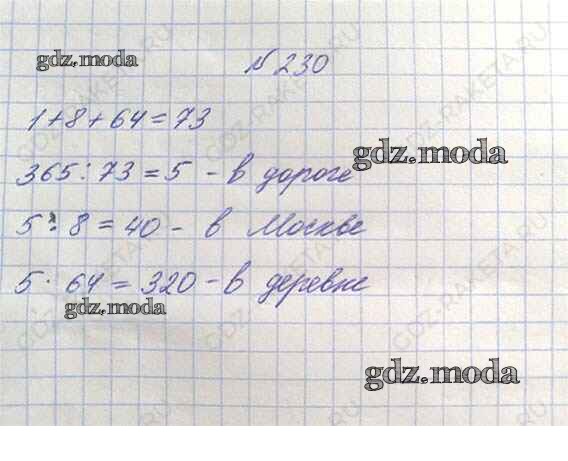 gdz.moda
№ 230
1+8+64=73
365:73=5 - в дороге
gdz.moda
5:8=40 - в Москве
5· 64=320 - в деревне
gdz.moda
gdz.moda
GDZ-RAKETA.RU